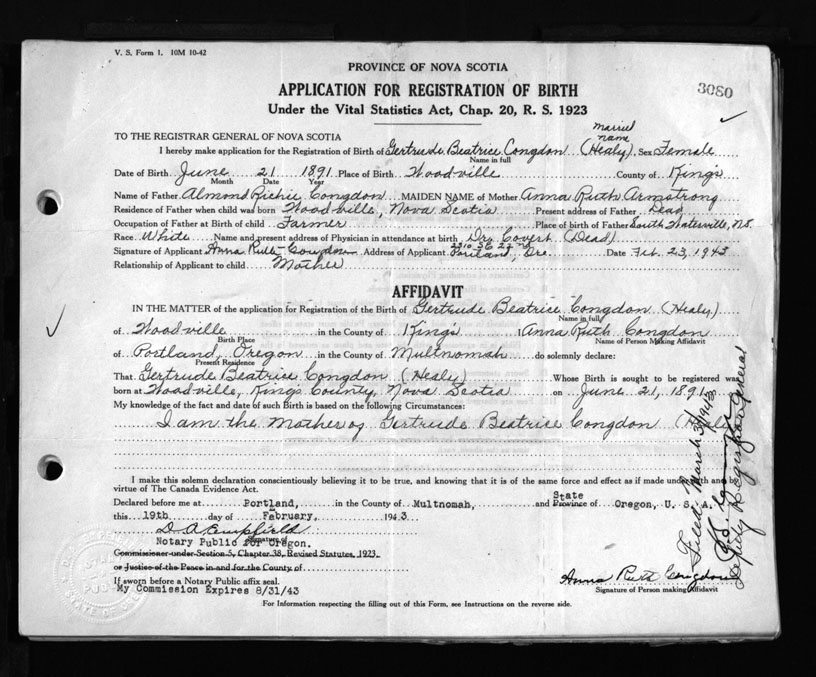 V. S. Form 1. 10M 10-42
PROVINCE OF NOVA SCOTIA
3080
APPLICATION FOR REGISTRATION OF BIRTH
Under the Vital Statistics Act, Chap. 20, R. S. 1923
TO THE REGISTRAR GENERAL OF NOVA SCOTIA
married name
I hereby make application for the Registration of Birth of Gertrude Beatrice Congdon (Healy) Sex Female
Name in full
Date of Birth June 21 1891 Place of Birth Woodville County of King's
Month Date Year
Name of Father Almond Richie Congdon MAIDEN NAME of Mother Anna Ruth Armstrong
Residence of Father when child was born Woodville, Nova Scotia Present address of Father Dead
Occupation of Father at Birth of child Farmer Place of birth of Father South Waterville, N.S.
Race White Name and present address of Physician in attendance at birth Dr. Covert (Dead)
Signature of Applicant Anna Ruth Congdon Address of Applicant Portland, Ore. Date Feb. 23, 1943
Relationship of Applicant to child Mother
AFFIDAVIT
IN THE MATTER of the application for Registration of the Birth of Gertrude Beatrice Congdon (Healy)
Name in full
of Woodville in the County of King's I Anna Ruth Congdon
Birth Place Name of Person Making Affidavit
of Portland, Oregon in the County of Multnomah do solemnly declare:
Present Residence
That Gertrude Beatrice Congdon (Healy) Whose Birth is sought to be registered was
born at Woodville, King's County, Nova Scotia on June 21, 1891
My knowledge of the fact and date of such Birth is based on the following Circumstances:
I am the Mother of Gertrude Beatrice Congdon (Healy)
I make this solemn declaration conscientiously believing it to be true, and knowing that it is of the same force and effect as if made under oath and by
virtue of The Canada Evidence Act.
State
Declared before me at Portland, in the County of Multnomah, and Province of Oregon, U. S. A.
this 19th day of February, 1943
D. A. Empfield
Signature of
Notary Public for Oregon.
Commissioner under Section 5, Chapter 38, Revised Statutes, 1923,
or Justice of the Peace in and for the County of
If sworn before a Notary Public affix seal.
My Commission Expires 8/31/43
Anna Ruth Congdon
Signature of Person making Affidavit
For Information respecting the filling out of this Form, see Instructions on the reverse side.
Filed March 3, 1943
Deputy Registrar General